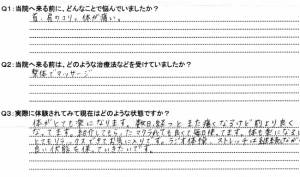 Q1：当院へ来る前に、どんなことで悩んでいましたか？
首、肩のコリ。体が痛い。
Q2：当院へ来る前は、どのような治療法などを受けていましたか？
整体でマッサージ
Q3：実際に体験されてみて現在はどのような状態ですか？
体がとても楽になります。数日経つとまた痛くなるけど前より良く
なってます。紹介してもらったマクラもとても良くて毎日使ってます。体も楽になるし
とてもリラックスできてお気に入りです。ラジオ体操、ストレッチは継続しながら
良い状態を保っていきたいです。